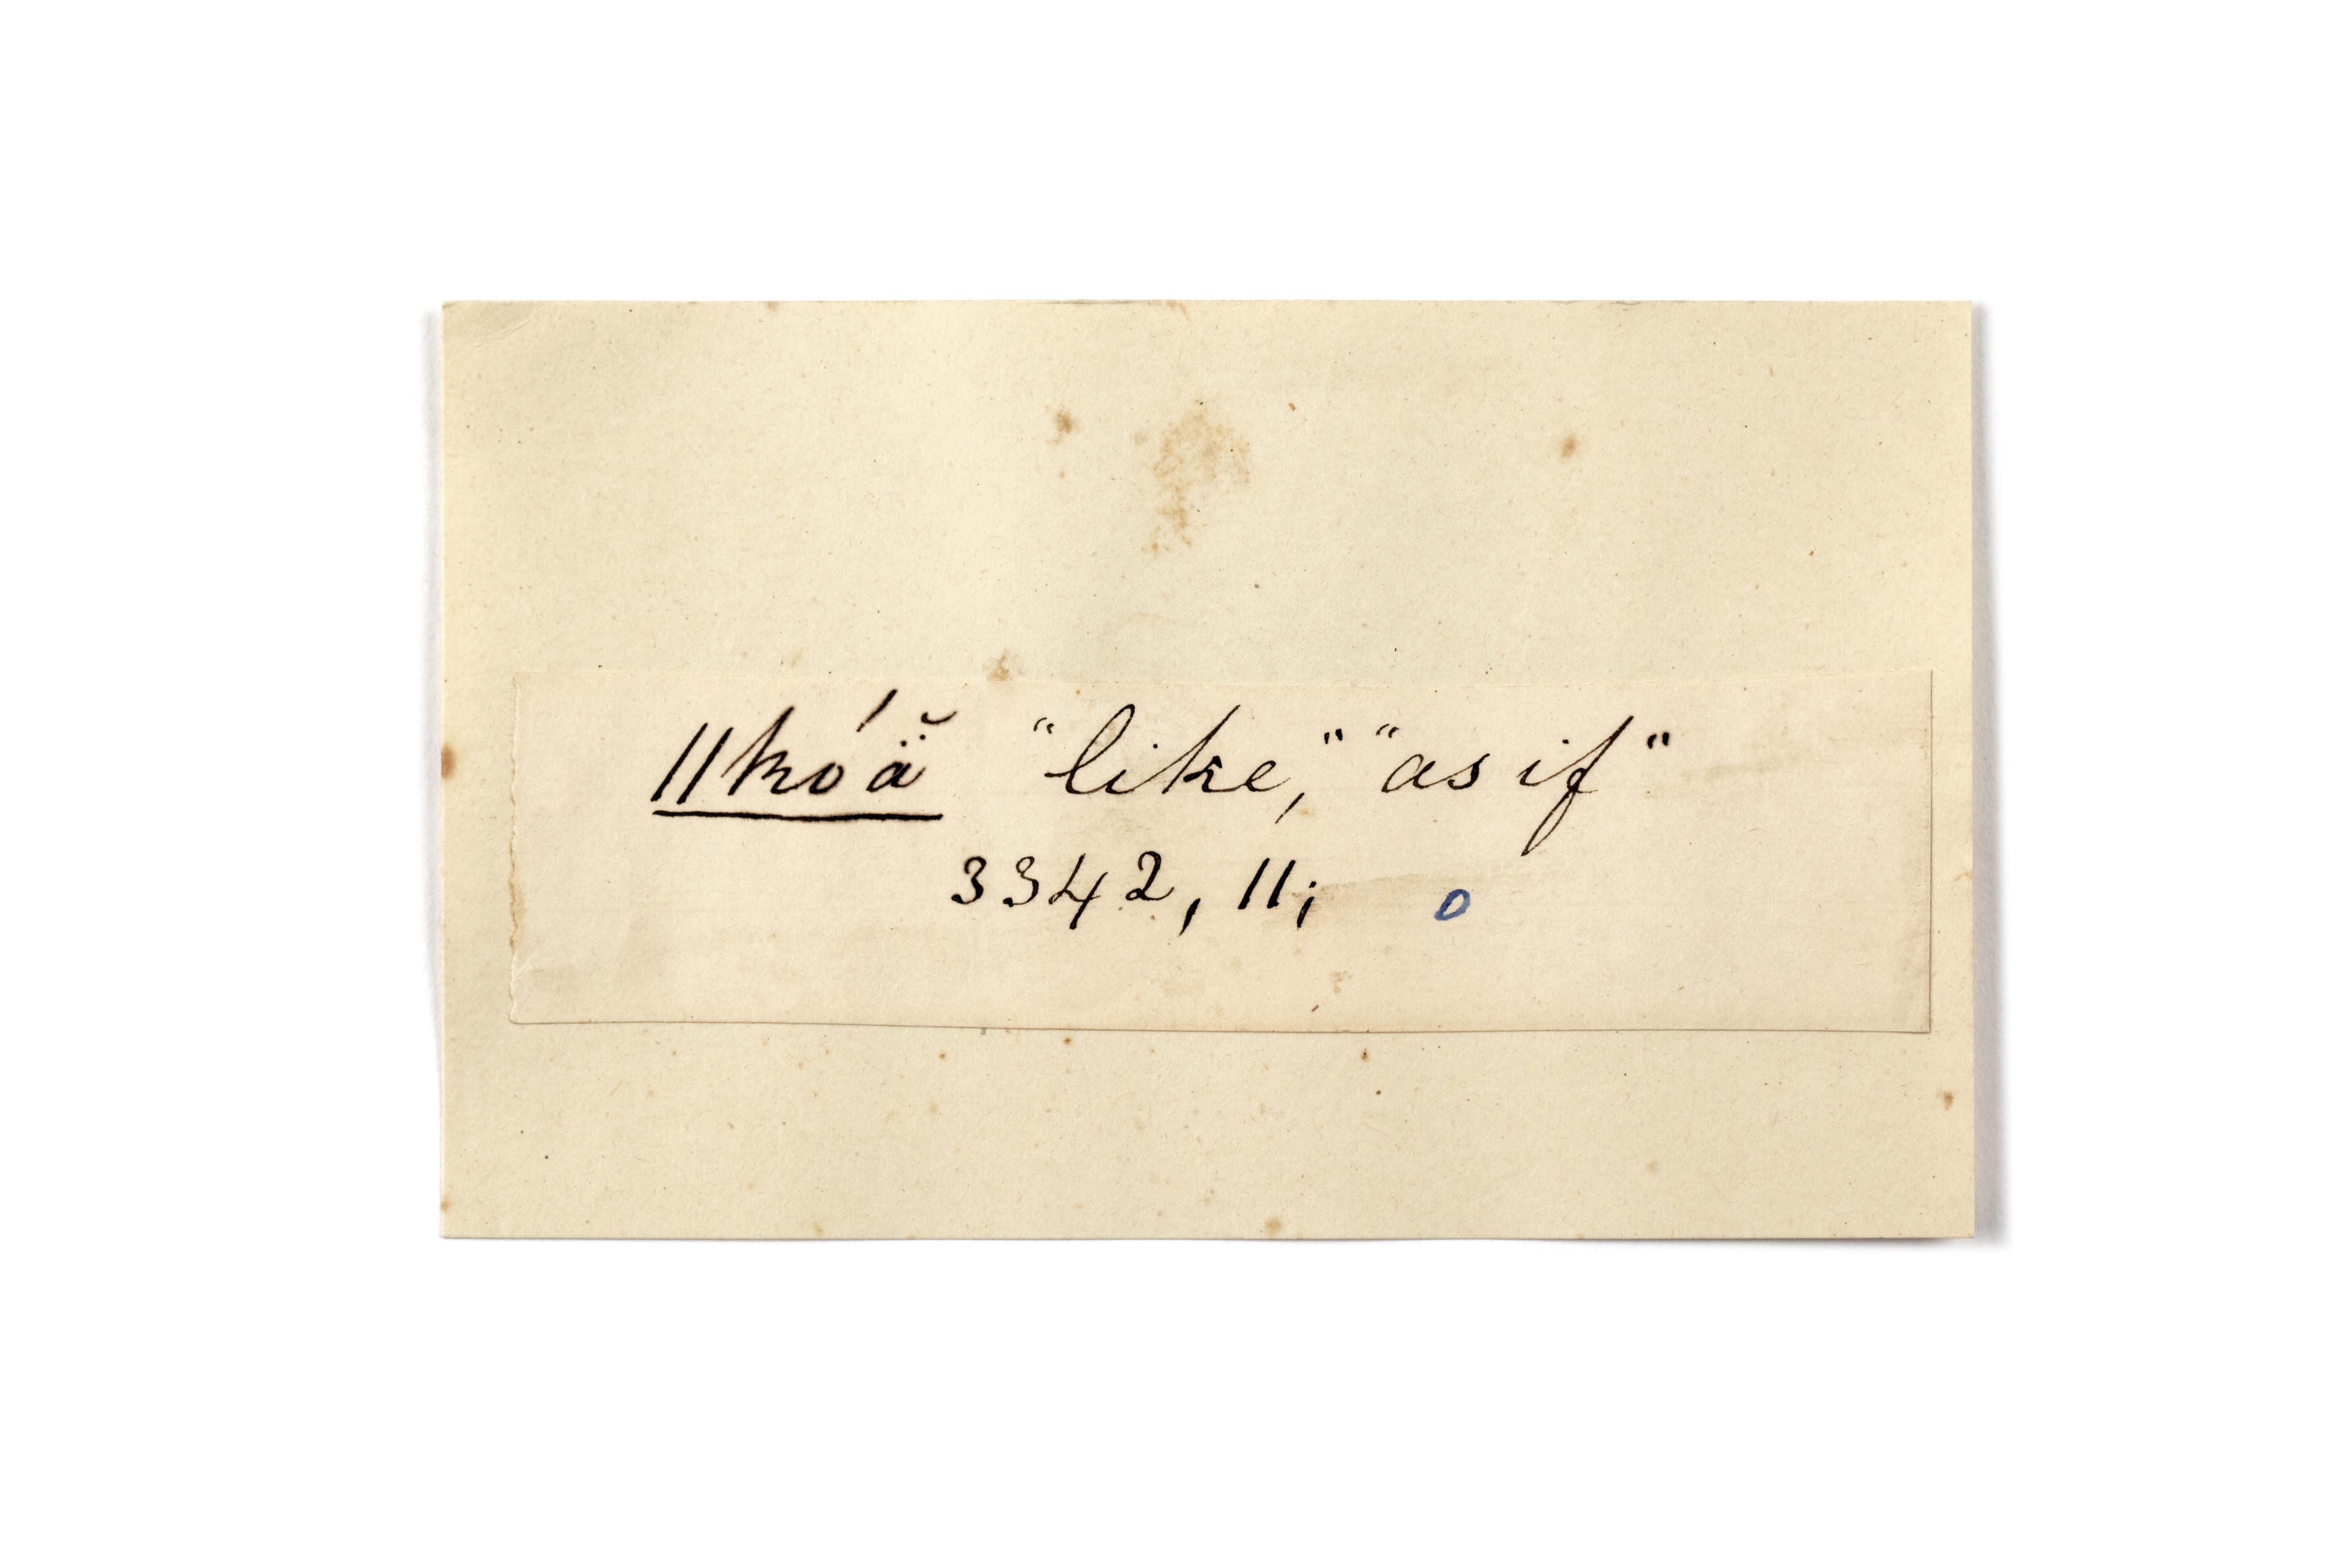 ǁkóä̆ "like," "as if"
3342, 11; o